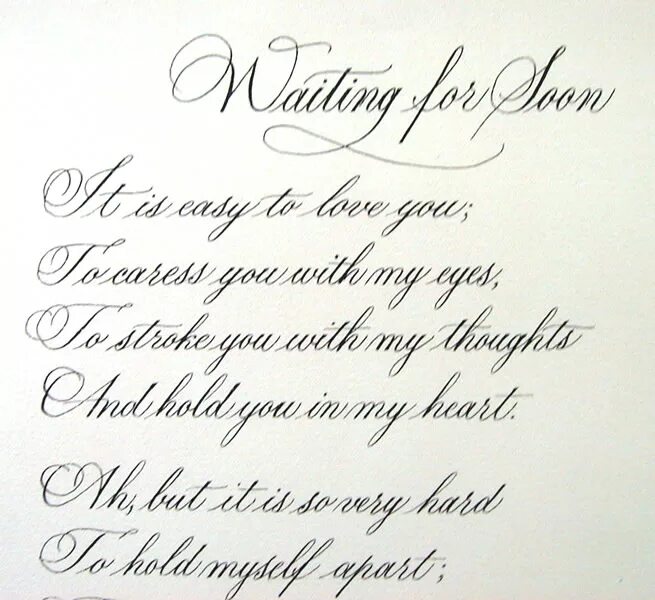 Waiting for Soon
It is easy to love you;
To caress you with my eyes,
To stroke you with my thoughts
And hold you in my heart.
Ah, but it is so very hard
To hold myself apart;